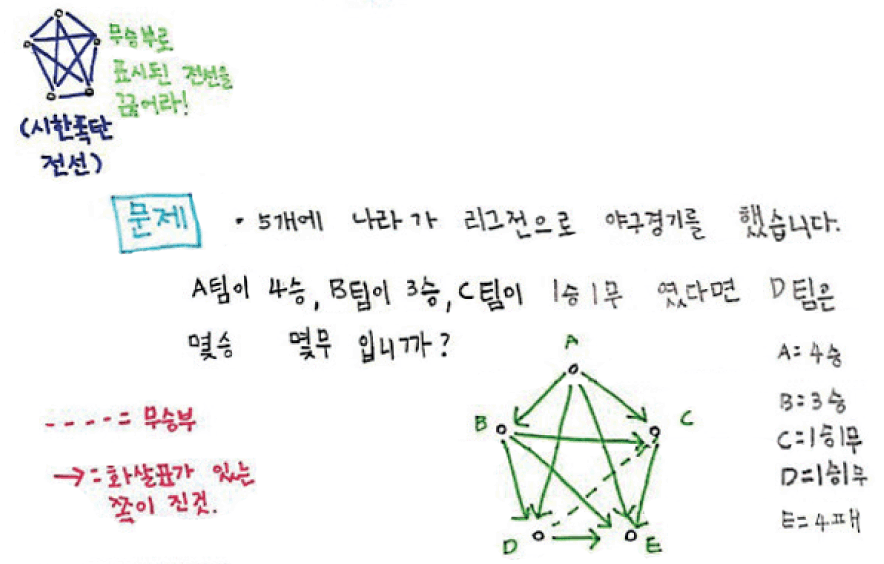 무승부로
표시된 전선을
끊어라!
(시한폭탄
전선)
문제 · 5개에 나라가 리그전으로 야구경기를 했습니다.
A팀이 4승, B팀이 3승, C팀이 1승1무 였다면 D팀은
몇승 몇무 입니까?
A
B
C
D
E
A=4승
B=3승
C=1승1무
D=1승1무
E=4패
----= 무승부
→=화살표가 있는
쪽이 진것.